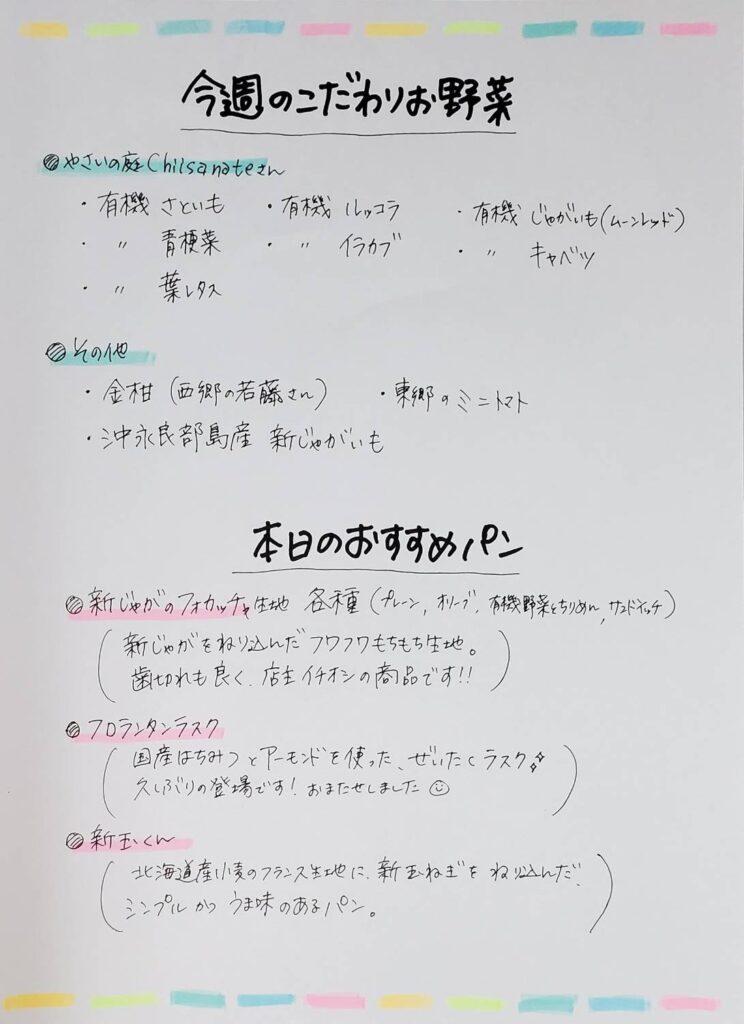 今週のこだわりお野菜
やさいの庭Chiisanateさん
・有機 さといも ・有機 ルッコラ ・有機 じゃがいも(ムーンレッド)
・ 〃 青梗菜 ・ 〃 イラカブ ・ 〃 キャベツ
・ 〃 葉レタス
その他
・金柑 (西郷の若藤さん) ・東郷のミニトマト
・沖永良部島産 新じゃがいも
本日のおすすめパン
新じゃがのフォカッチャ生地 各種 (プレーン, オリーブ, 有機野菜とちりめん, サンドイッチ)
(新じゃがをねり込んだフワフワもちもち生地。
歯切れも良く、店主イチオシの商品です!!)
フロランタンラスク
(国産はちみつとアーモンドを使った、ぜいたくラスク
久しぶりの登場です! おまたせしました☺)
新玉くん
(北海道産小麦のフランス生地に、新玉ねぎをねり込んだ、
シンプルかつうま味のあるパン。)